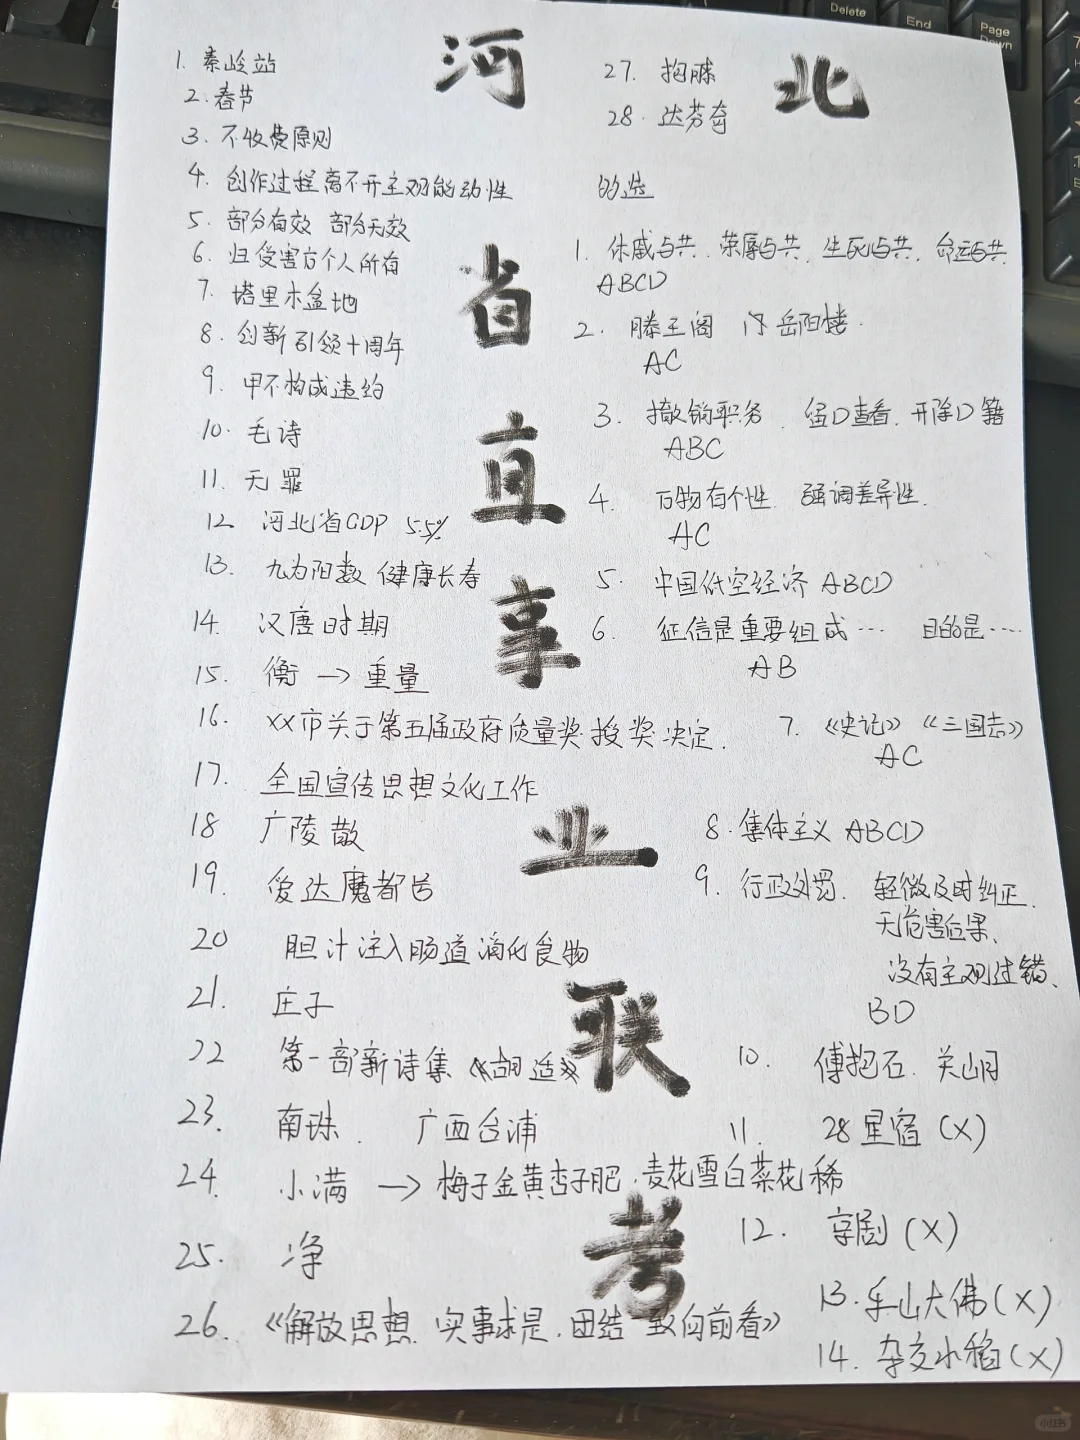 河北
省直事业联考
1. 秦岭站
2. 春节
3. 不收费原则
4. 创作过程离不开主观能动性
5. 部分有效 部分无效
6. 归受害方个人所有
7. 塔里木盆地
8. 创新引领十周年
9. 甲不构成违约
10. 毛诗
11. 无罪
12. 河北省GDP 5.5%
13. 九为阳数 健康长寿
14. 汉唐时期
15. 衡 → 重量
16. XX市关于第五届政府质量奖授奖决定.
17. 全国宣传思想文化工作
18 广陵散
19. 爱达魔都号
20 胆汁注入肠道消化食物
21. 庄子
22 第一部新诗集《胡适》
23. 南珠. 广西合浦
24. 小满 → 梅子金黄杏子肥,麦花雪白菜花稀
25. 净
26. 《解放思想,实事求是,团结一致向前看》
27. 拘
28. 达芬奇
的选
1. 休戚与共、荣辱与共、生死与共、命运与共
ABCD
2. 滕王阁 岳阳楼.
AC
3. 撤销职务、留D查看、开除D籍
ABC
4. 万物有个性. 强调差异性.
AC
5. 中国低空经济 ABCD
6. 征信是重要组成… 目的是……
AB
7. 《史记》《三国志》
AC
8. 集体主义 ABCD
9. 行政处罚. 轻微及时纠正.
无危害后果、
没有主观过错、
BD
10. 傅抱石. 关山月
11. 28星宿(X)
12. 京剧(X)
13. 乐山大佛(X)
14. 杂交水稻(X)
Delete
End
Page
Down
小红书